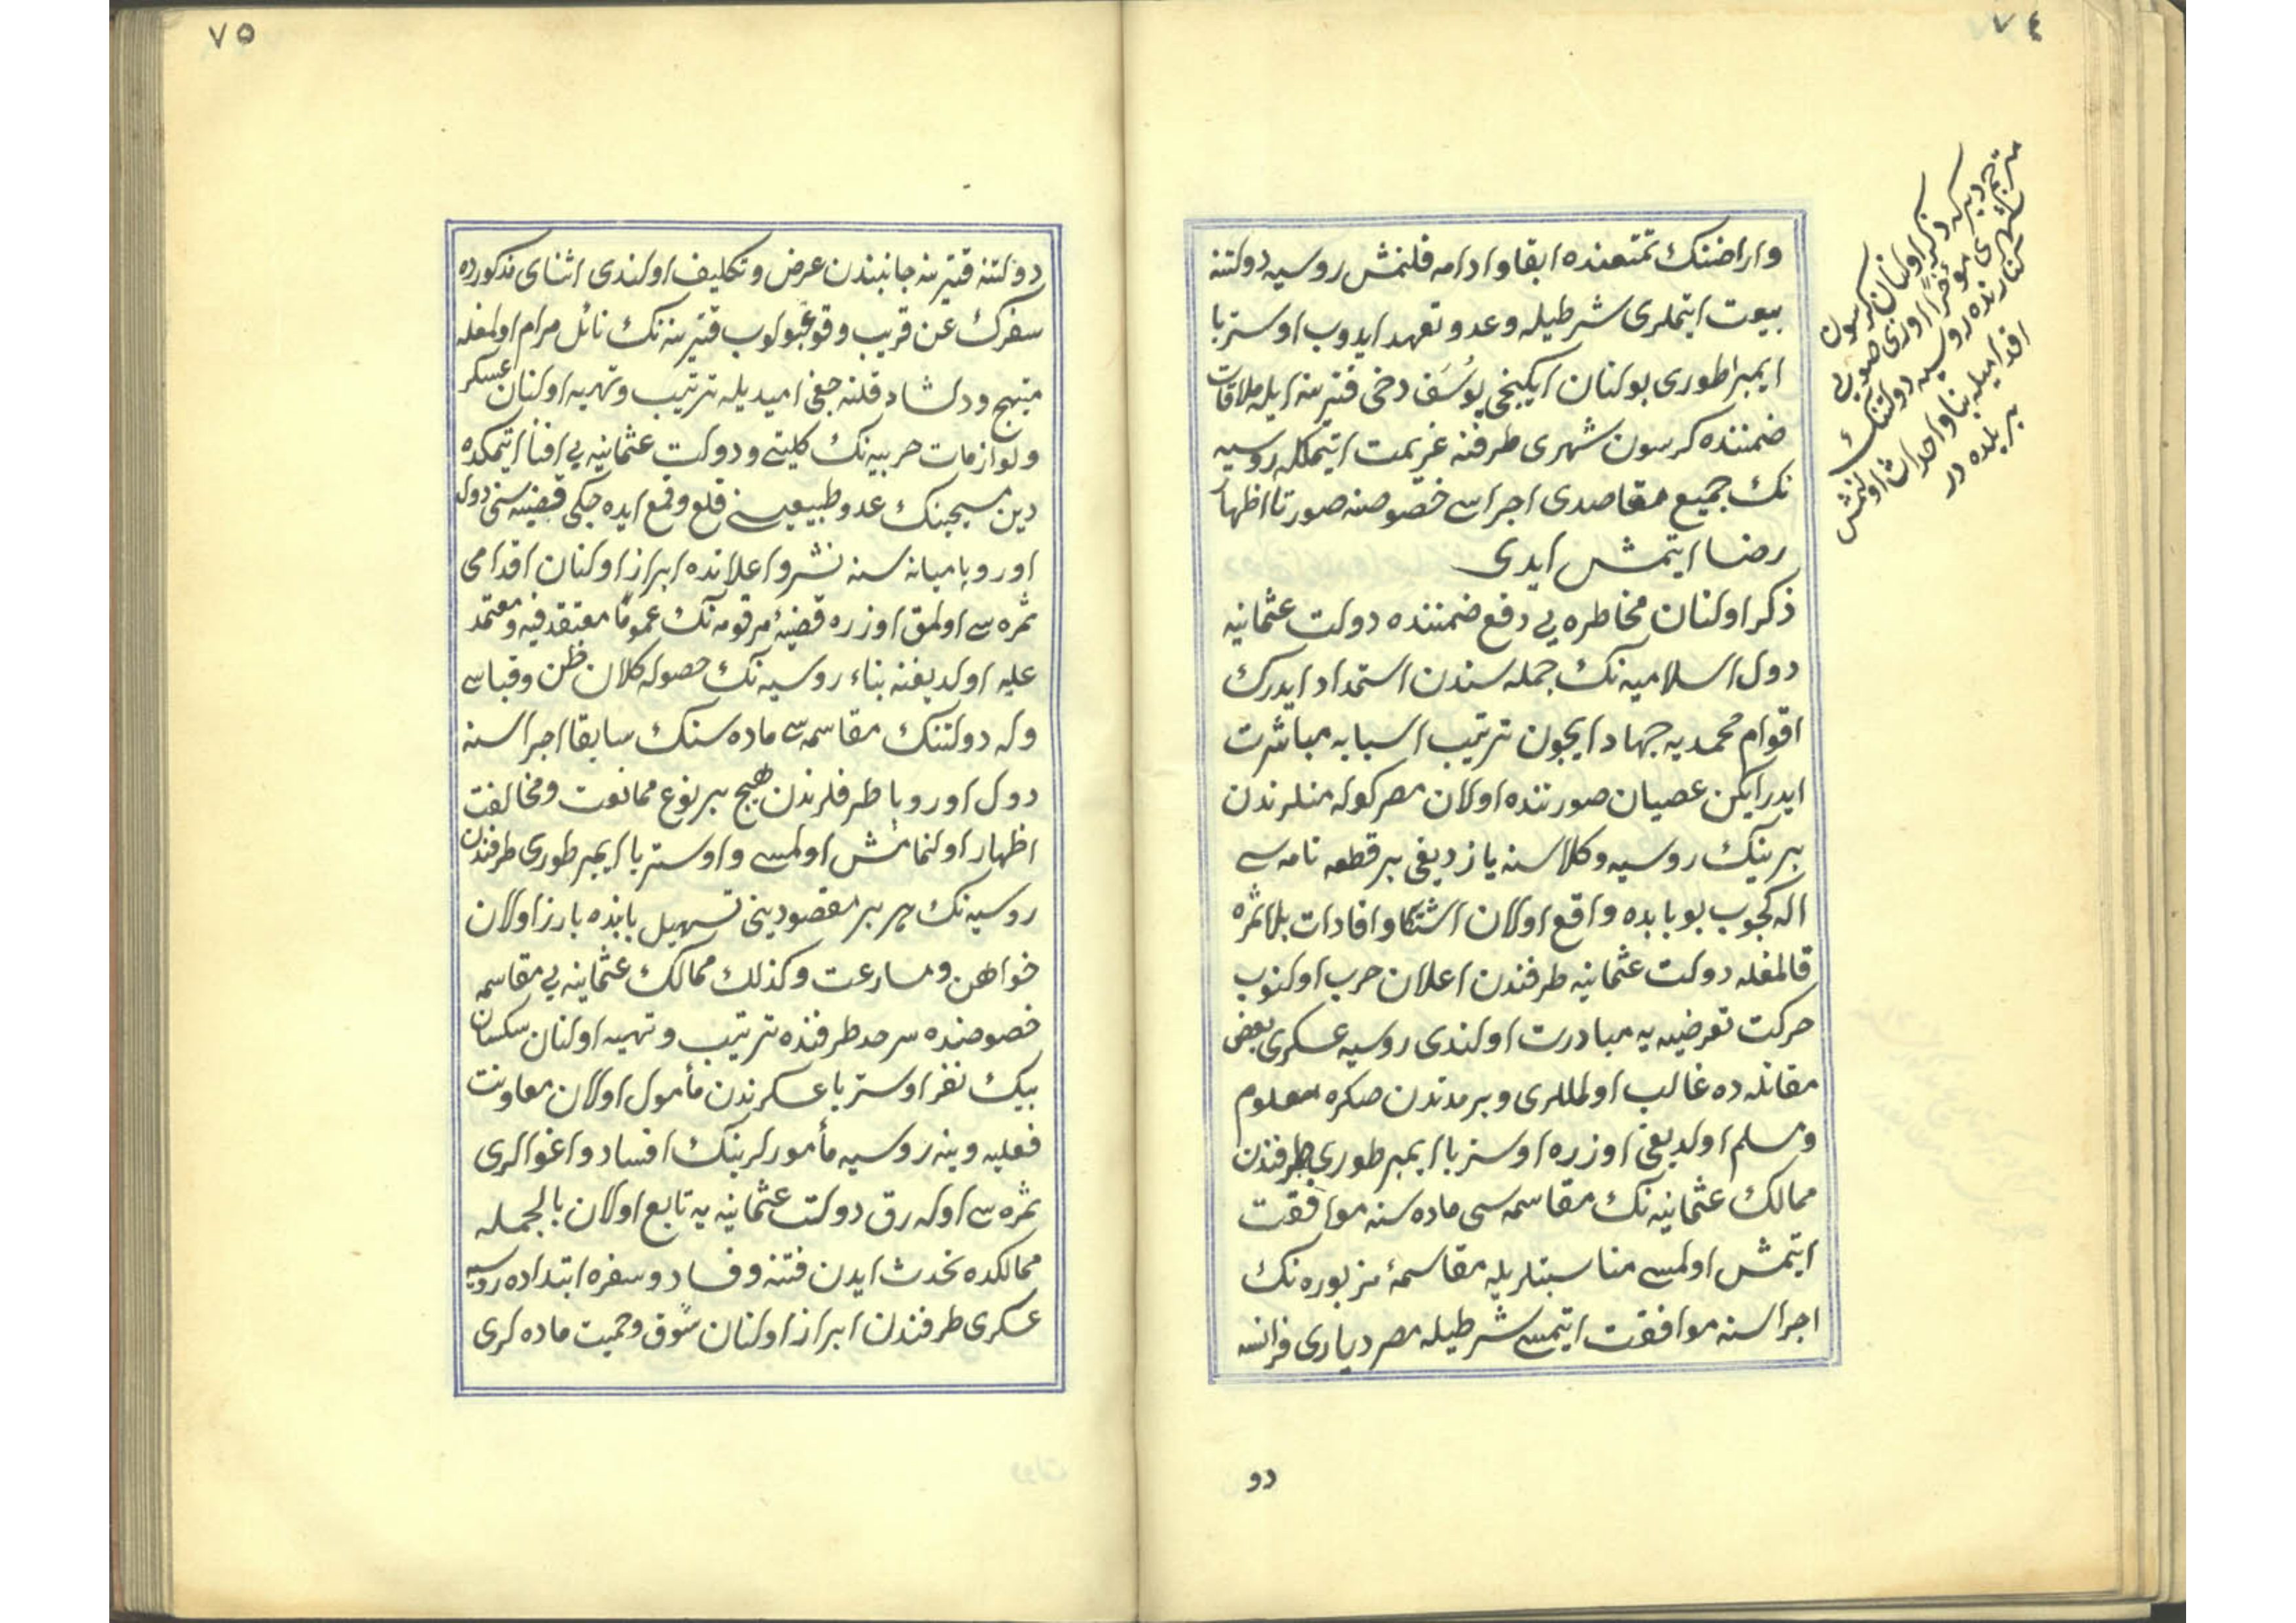 ٧٤
واراضینك تمتعنده ابقا و ادامه قلنمش روسیه دولتنه
بیعت ایتملری شرطیله وعد و تعهد ایدوب اوستریا
ایمپراطوری بولنان ایکینجی یوسف دخی قتیرینه ایله ملاقات
ضمننده کرسون شهری طرفنه عزیمت ایتمکله روسیه
نك جمیع مقاصدی اجراسی خصوصنه صورتا اظهار
رضا ایتمش ایدی
ذکر اولنان مخاطره یی دفع ضمننده دولت عثمانیه
دول اسلامیه نك جمله سندن استمداد ایدرك
اقوام محمدیه جهاد ایچون ترتیب اسبابه مباشرت
ایدر ایکن عصیان صورتنده اولان مصر کوله منلرندن
برینك روسیه وکلاسنه یازدیغی بر قطعه نامه سی
اله کچوب بو بابده واقع اولان اشتکا و افادات بلاثمره
قالمغله دولت عثمانیه طرفندن اعلان حرب اولنوب
حرکت تعرضیه یه مبادرت اولندی روسیه عسکری بعض
مقاتله ده غالب اولمللری و بر مدتدن صکره معلوم
و مسلم اولدیغی اوزره اوستریا ایمپرطوری طرفندن
ممالك عثمانیه نك مقاسمه سی ماده سنه موافقت
ایتمش اولمسی مناسبتلریله مقاسمهٔ مزبوره نك
اجراسنه موافقت ایتمسی شرطیله مصر دیاری فرانسه
دو
مترجم دیرکه ذکر اولنان کرسون
شهری مؤخرا اوزی صویی
کنارنده روسیه دولتنك
اقدامیله بنا و احداث اولنمش
بر بلده در
٧٥
دولتنه قتیرینه جانبندن عرض و تکلیف اولندی اثنای مذکورده
سفرك عن قریب وقوعبولوب قتیرینه نك نائل مرام اولمغله
مبتهج و دلشاد قلنه جغی امیدیله ترتیب و تهیه اولنان عسکر
و لوازمات حربیه نك کلیتی و دولت عثمانیه یی افنا ایتمکده
دین مسیحینك عدو طبیعیسنی قلع و قمع ایده جکی قضیه سنی دول
اوروپا میانه سنه نشر و اعلانده ابراز اولنان اقدامی
ثمره سی اولمق اوزره قضیهٔ مرقومه نك عموما معتقد فیه و معتمد
علیه اولدیغنه بناء روسیه نك حصوله کلان ظن و قیاسی
و له دولتنك مقاسمه سی ماده سنك سابقا اجراسنه
دول اوروپا طرفلرندن هیچ بر نوع ممانعت و مخالفت
اظهار اولنمامش اولمسی و اوستریا ایمپرطوری طرفندن
روسیه نك هر بر مقصودینی تسهیل بابنده بارز اولان
خواهش و مسارعت و کذلك ممالك عثمانیه یی مقاسمه
خصوصنده سرحد طرفنده ترتیب و تهیه اولنان سکسان
بیك نفر اوستریا عسکرندن مأمول اولان معاونت
فعلیه و ینه روسیه مأمورلرینك افساد و اغوالری
ثمره سی اوله رق دولت عثمانیه یه تابع اولان بالجمله
ممالکده تحدث ایدن فتنه و فساد و سفره ابتداده روسیه
عسکری طرفندن ابراز اولنان شوق و حمیت ماده لری